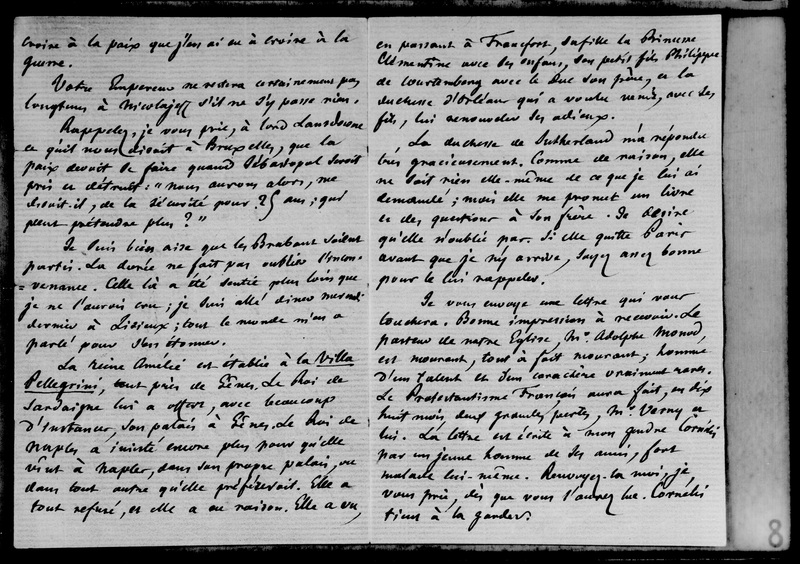 croire à la paix que j'en ai eu à croire à la
guerre.
Votre Empereur ne restera certainement pas
longtems à Nicolajeff s'il ne s'y passe rien.
Rappelez, je vous prie, à lord Lansdowne
ce qu'il nous disoit à Bruxelles, que la
paix devoit se faire quand Sébastopol seroit
pris et détruit : "nous aurons alors, me
disoit-il, de la sécurité pour 25 ans ; qui
peut prétendre plus ?"
Je suis bien aise que les Brabant soient
partis. La durée ne fait pas oublier l'incon-
venance. Celle là a été sentie plus loin que
je ne l'aurois cru ; je suis allé diner mercredi
dernier à Lisieux ; tout le monde m'en a
parlé pour s'en étonner.
La Reine Amélie est établie à la Villa
Pellegrini, tout près de Gênes. Le Roi de
Sardaigne lui a offert, avec beaucoup
d'instances, son palais à Gênes. Le Roi de
Naples a insisté encore plus pour qu'elle
vînt à Naples, dans son propre palais, ou
dans tout autre qu'elle préférerait. Elle a
tout refusé, et elle a eu raison. Elle a vu,
en passant à Francfort, sa fille la Princesse
Clémentine avec ses enfans, son petit fils Philippe
de Wurtemberg avec le Duc son père, et la
duchesse d'Orléans qui a voulu venir, avec ses
fils, lui renouveler ses adieux.
La duchesse de Sutherland m'a répondu
très gracieusement. Comme de raison, elle
ne sait rien elle-même de ce que je lui ai
demandé ; mais elle me promet un livre
et des questions à son frère. Je desire
qu'elle n'oublie pas. Si elle quitte Paris
avant que je n'y arrive, soyez assez bonne
pour le lui rappeler.
Je vous envoye une lettre qui vous
touchera. Bonne impression à recevoir. Le
pasteur de notre Eglise, Mr. Adolphe Monod,
est mourant, tout à fait mourant ; homme
d'un talent et d'un caractère vraiment rares.
Le Protestantisme Français aura fait, en dix
huit mois, deux grandes pertes, Mr. Verny et
lui. La lettre est écrite à mon gendre Cornélis
par un jeune homme de ses amis, fort
malade lui-même. Renvoyez-la moi, je
vous prie, dès que vous l'aurez lue. Cornélis
tient à la garder.
8